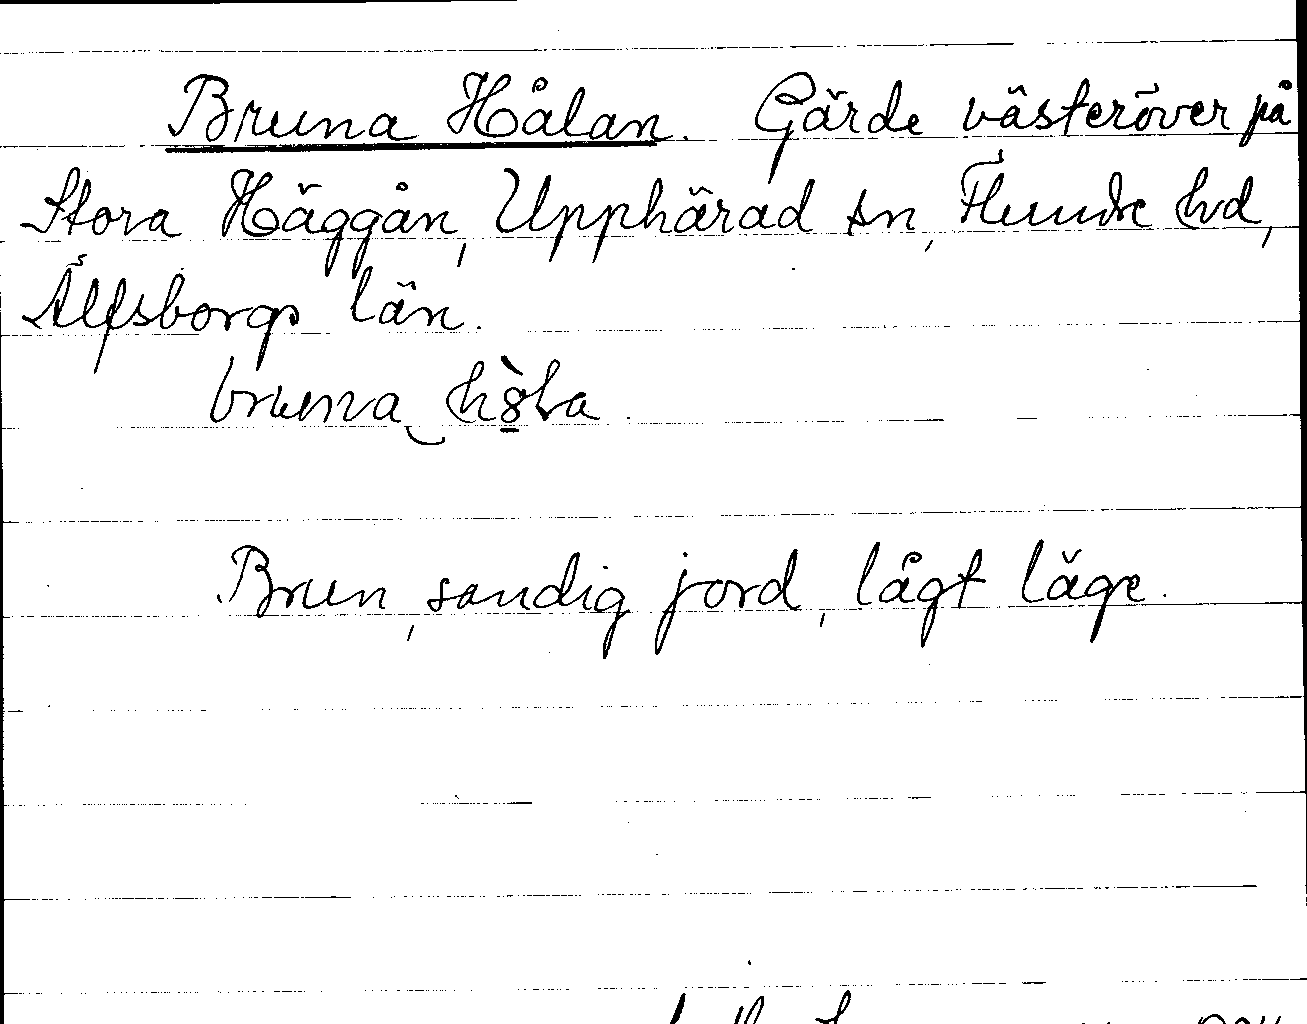 Bruna Hålan. Gärde västeröver på
Stora Häggån, Upphärad sn, Flundre hd,
Älfsborgs län.
bruna
Brun, sandig jord, lågt läge.